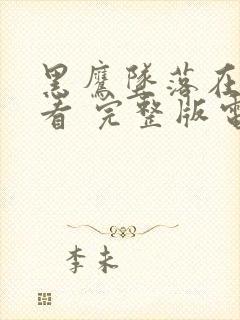 黑鹰坠落在
看 完整版电
李未